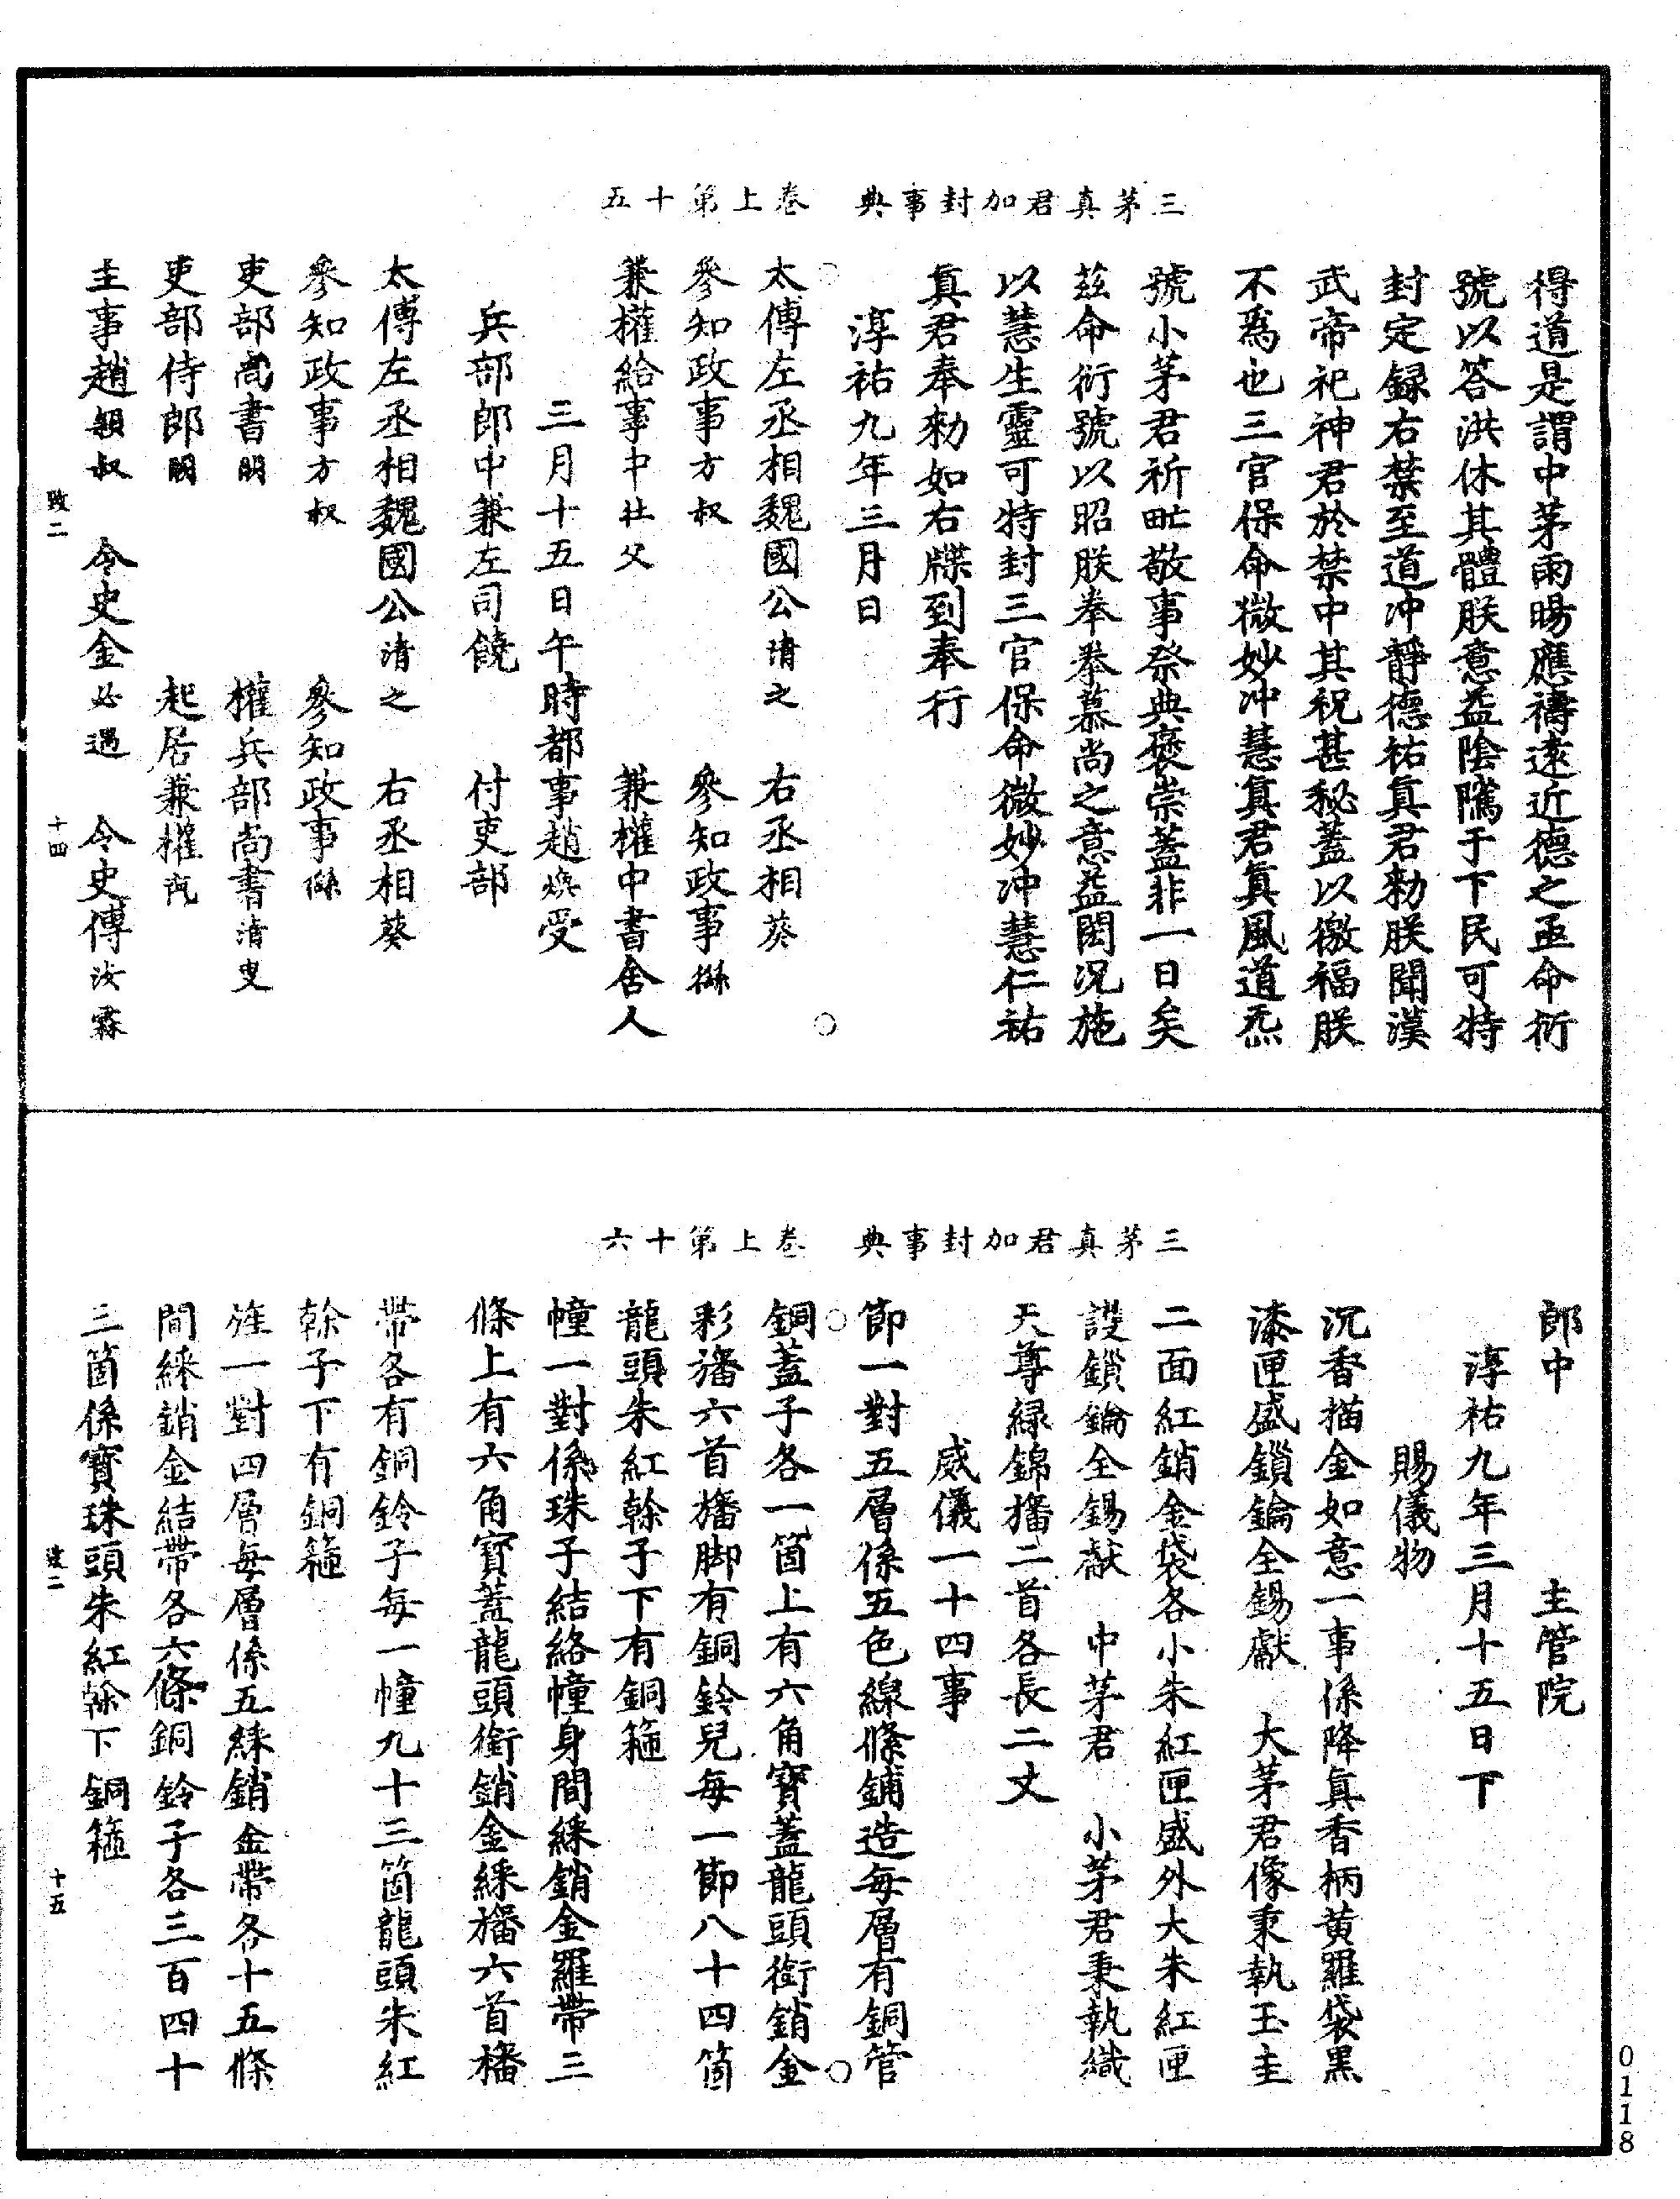 三茅真君加封事典　卷上第十五
得道是謂中茅雨暘應禱遠近德之亟命衍
號以答洪休其體朕意益陰隲于下民可特
封定録右禁至道冲靜德祐真君勑朕聞漢
武帝祀神君於禁中其祝甚秘蓋以徼福朕
不為也三官保命微妙冲慧真君真風道炁
號小茅君祈㽘敬事祭典褒崇蓋非一日矣
兹命衍號以昭朕拳拳慕尚之意益閎況施
以慧生靈可特封三官保命微妙冲慧仁祐
真君奉勑如右牒到奉行
淳祐九年三月日
太傅左丞相魏國公清之　右丞相葵
參知政事方叔　參知政事
兼權給事中　兼權中書舍人
三月十五日午時都事趙煥受
兵部郎中兼左司饒　付吏部
太傅左丞相魏國公清之　右丞相葵
參知政事方叔　參知政事
吏部尚書　權兵部尚書清叟
吏部侍郎　起居兼權
主事趙叔　令史金必遇　令史傅汝霖
二　十四
三茅真君加封事典　卷上第十六
郎中　主管院
淳祐九年三月十五日下
賜儀物
沉香描金如意一事係降真香柄黄羅袋黑
漆匣盛鎖鑰全錫獻　大茅君像秉執玉圭
二面紅銷金袋各小朱紅匣盛外大朱紅匣
護鎖鑰全錫獻　中茅君　小茅君秉執織
天尊緑錦旛二首各長二丈
威儀一十四事
節一對五層係五色線絛鋪造每層有銅管
銅蓋子各一箇上有六角寶蓋龍頭銜銷金
彩旛六首旛脚有銅鈴兒每一節八十四箇
龍頭朱紅榦子下有銅箍
幢一對係珠子結絡幢身間綵銷金羅帶三
條上有六角寶蓋龍頭銜銷金綵旛六首旛
帶各有銅鈴子每一幢九十三箇龍頭朱紅
榦子下有銅箍
旌一對四層每層係五綵銷金帶各十五條
間綵銷金結帶各六條銅鈴子各三百四十
三箇係寶珠頭朱紅榦下銅箍
二　十五
0118